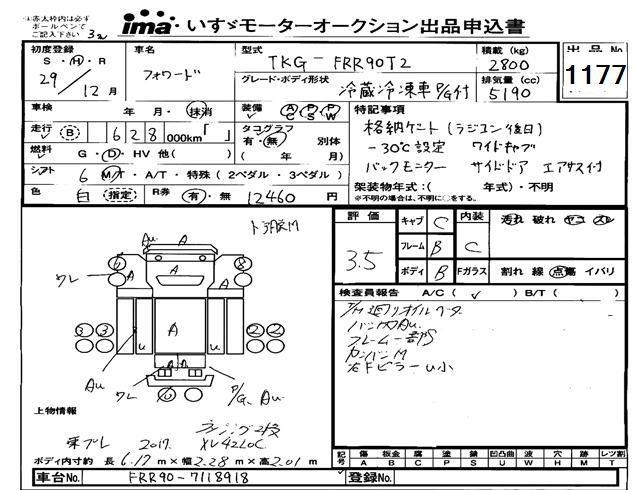 ※赤太枠内は必ず
ボールペンで
ご記入下さい
ima いすゞモーターオークション出品申込書
初度登録 S・H・R 29/12月
車名 フォワード
型式 TKG-FRR90T2
積載(kg) 2800
グレード・ボディ形状 冷蔵冷凍車P/G付
排気量(cc) 5190
出品No 1177
車検 年 月・抹消
装備 A/C P/S P/W
特記事項
走行 B 628,000km「 」
タコグラフ 有・無 別体
( 年 月)
格納ゲート(ラジコン後日)
-30℃設定 ワイドキャブ
バックモニター サイドドア エアサス付
燃料 G・D・HV 他( )
シフト 6 M/T・A/T・特殊(2ペダル・3ペダル)
架装物年式:( 年式)・不明
※不明の場合は、不明に○をする。
色 白 指定 R券 有・無 12460円
評価 3.5
キャブ C 内装 C 汚れ 破れ ヤコ スレ
フレーム B
ボディ B Fガラス 割れ 線 点傷 イバリ
検査員報告 A/C(✓) B/T( )
バンパAu.
フレーム一部S
カンバンM
右FピラーU小
Au A
6 A 8
ワレ A
3 3 A 2 2
U U
Au A A
ワレ U P/G、Au.
上物情報
東プレ 2017 XV42LOC
ボディ内寸約 長6.17m×幅2.28m×高2.01m
記号 傷A 板金B 腐C 塗P 錆S 凹凸曲U 波W 穴H 跡M レツ割T
車台No. FRR90-7118918
登録No.